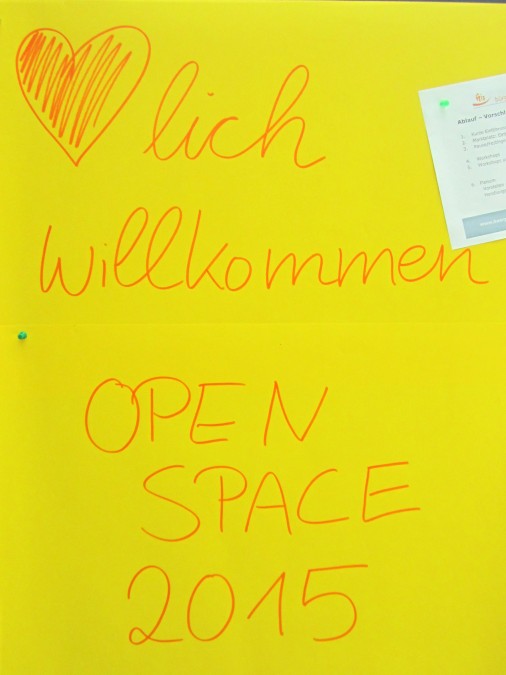 lich
Willkommen
OPEN
SPACE
2015
Ablauf – Vorschl